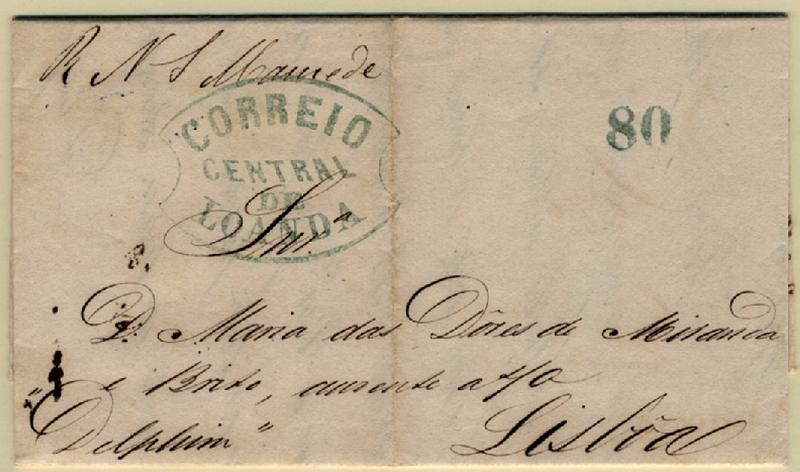 R N S Mamede
CORREIO
CENTRAL
DE
LOANDA
80
Snr.ª
D. Maria das Dôres de Miranda
e Brito, ausente a
"Delphim"
Lisbôa